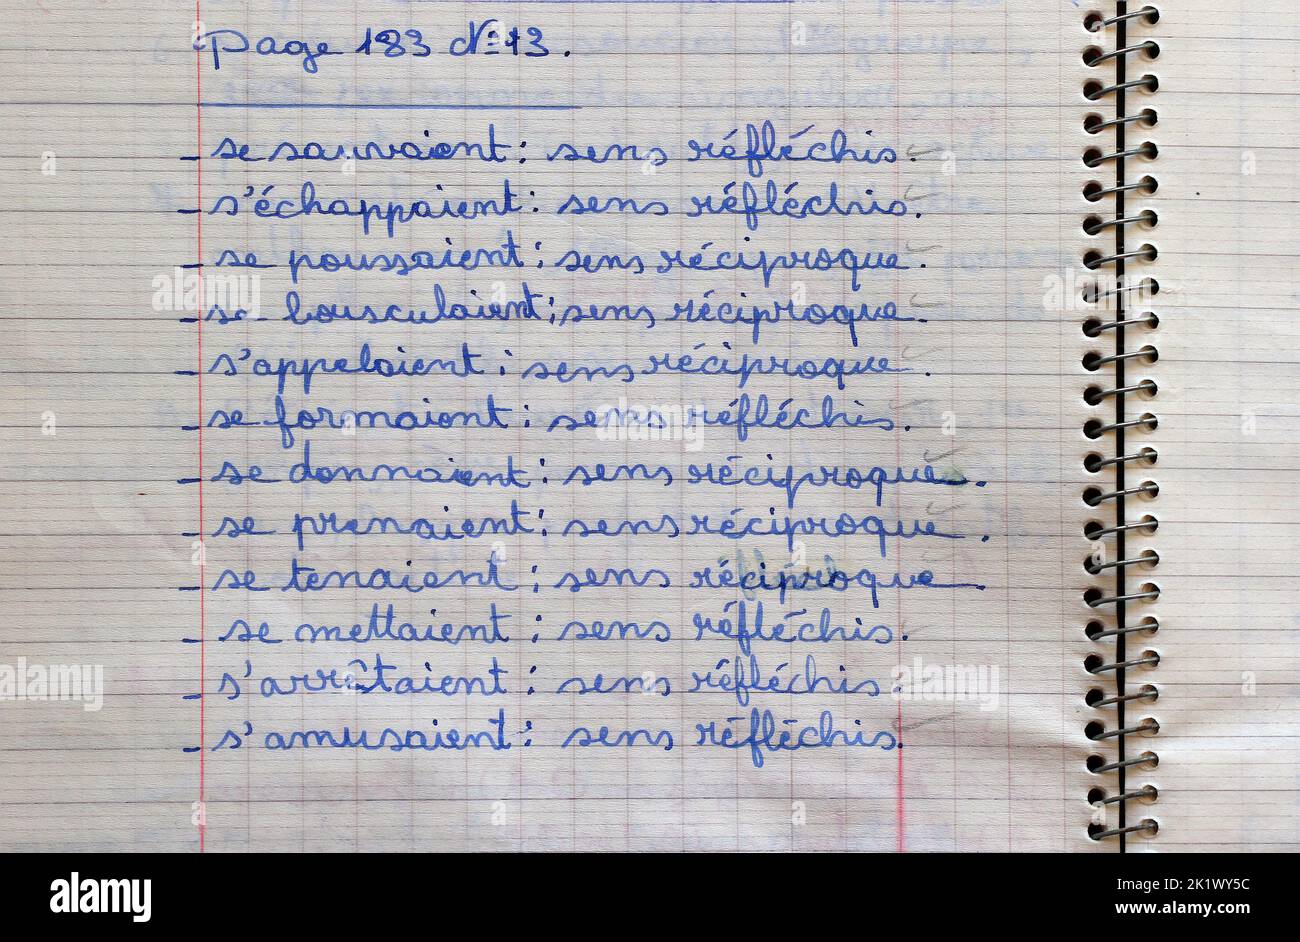 Page 183 N° 13.
- se sauvaient : sens réfléchis.
- s'échappaient : sens réfléchis.
- se poussaient : sens réciproque.
- se bousculaient : sens réciproque.
- s'appelaient : sens réciproque.
- se formaient : sens réfléchis.
- se donnaient : sens réciproque.
- se prenaient : sens réciproque.
- se tenaient : sens réciproque.
- se mettaient : sens réfléchis.
- s'arrêtaient : sens réfléchis.
- s'amusaient : sens réfléchis.
alamy
Image ID: 2K1WY5C
www.alamy.com